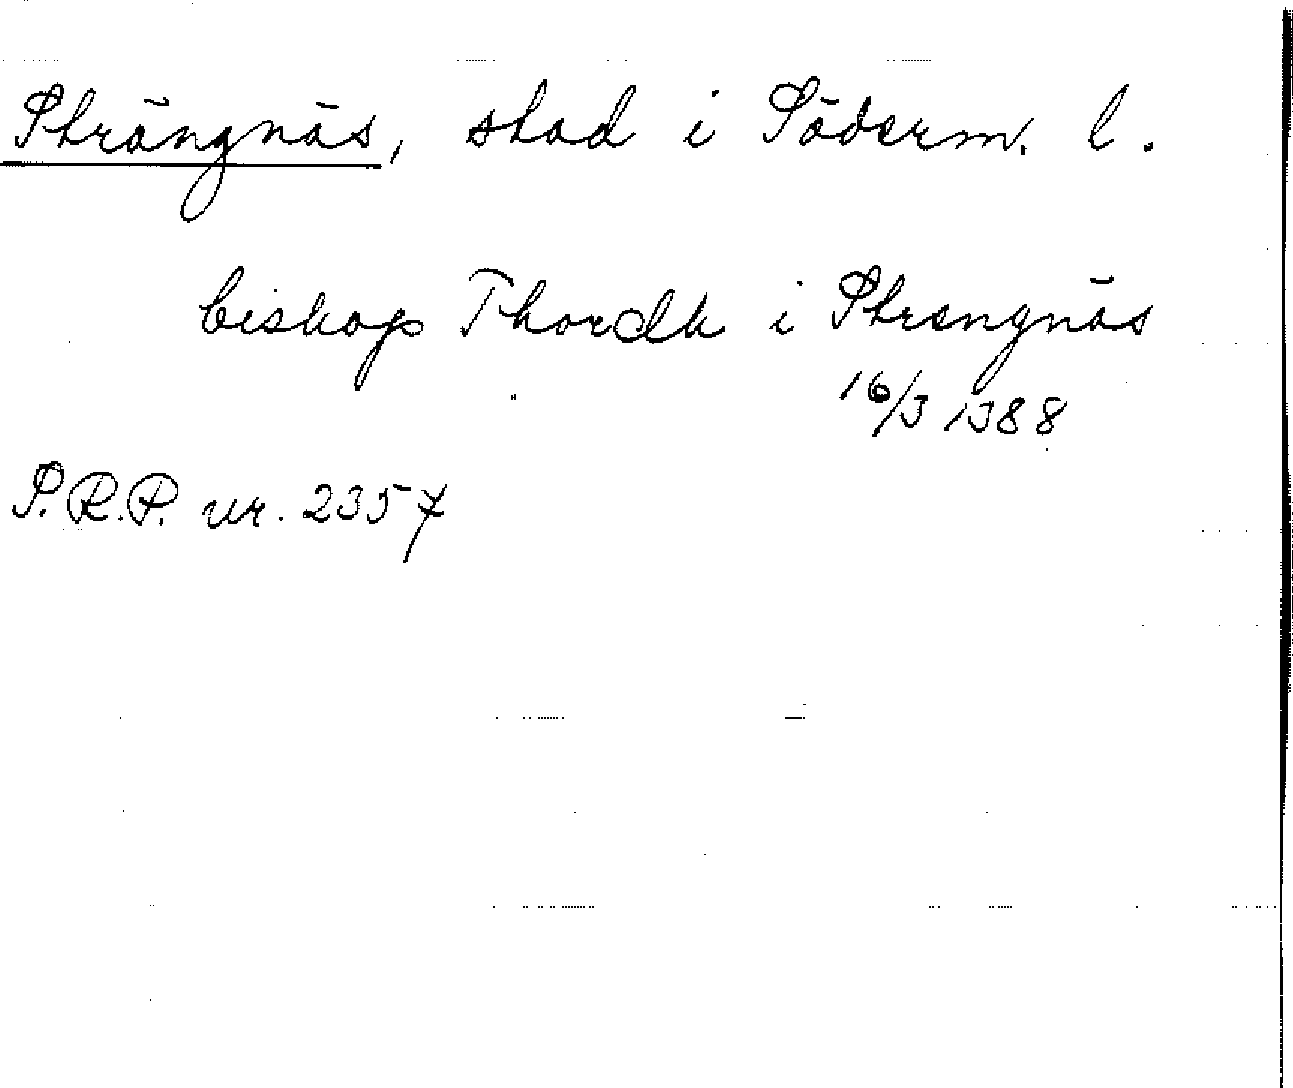 Strängnäs, stad i Söderm. l.
biskop Thordh i Strengnäs
16/3 1388
S.R.P. nr. 2357